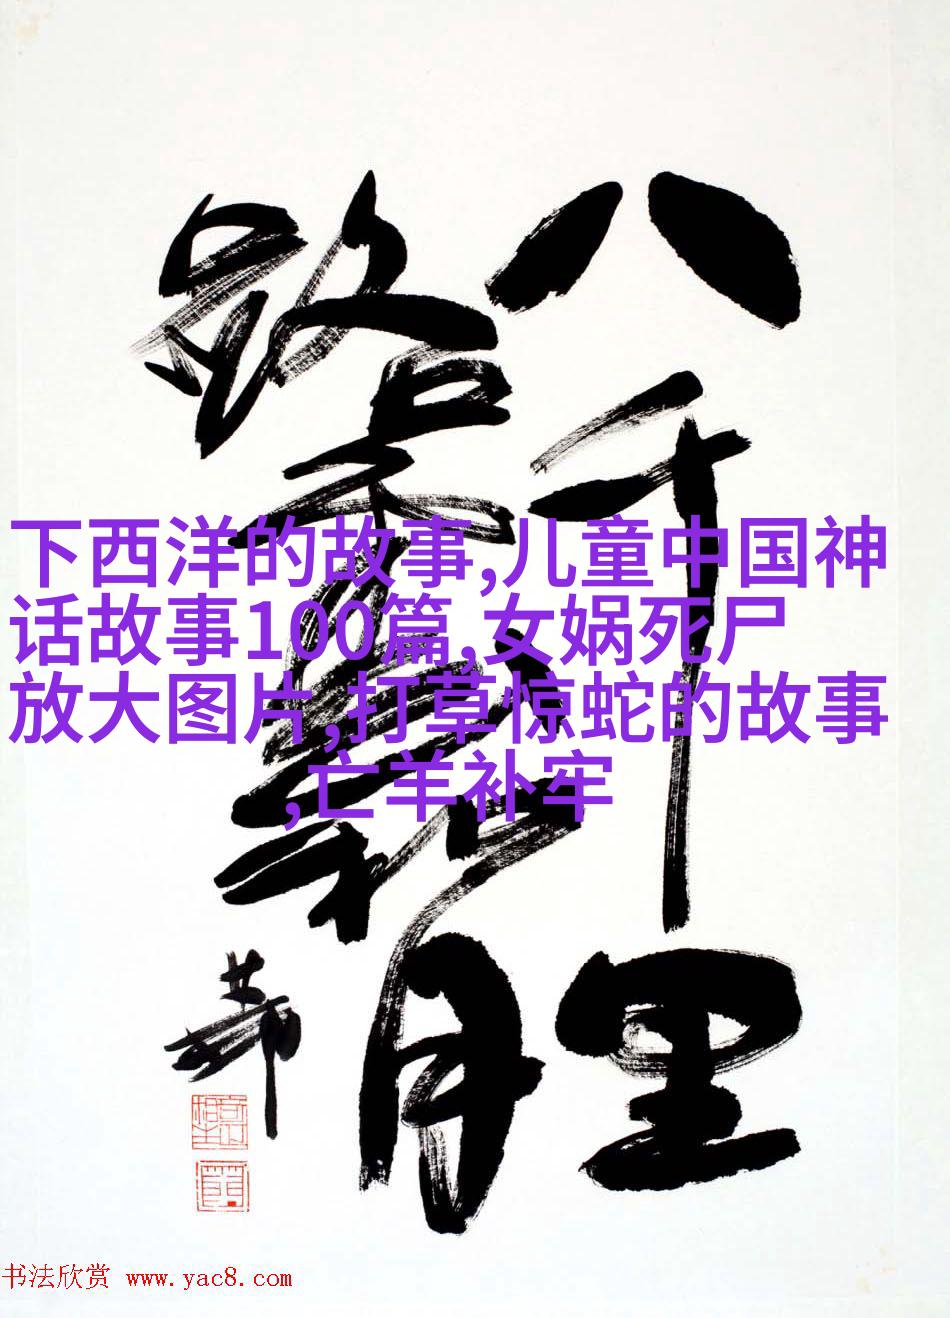 八千里
路雲和月
下西洋的故事,儿童中国神
话故事100篇,女娲死尸
放大图片,打草惊蛇的故事
,亡羊补牢
书法欣赏 www.yac8.com